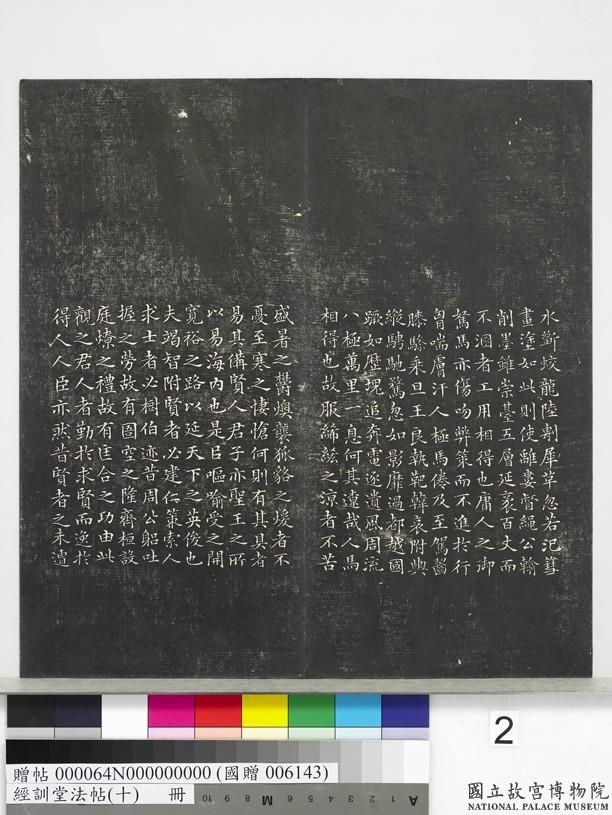 水斷蛟龍陸剸犀革忽若汜篲
畫塗如此則使離婁督繩公輸
削墨雖崇臺五層延袤百丈而
不溷者工用相得也庸人之御
駑馬亦傷吻弊策而不進於行
胷喘膚汗人極馬倦及至駕齧
膝驂乘旦王良執靶韓哀附輿
縱騁馳騖忽如影靡過都越國
蹶如歷塊追奔電逐遺風周流
八極萬里一息何其遠哉人馬
相得也故服絺綌之涼者不苦
盛暑之鬱燠襲狐貉之煖者不
憂至寒之悽愴何則有其具者
易其備賢人君子亦聖王之所
以易海內也是臣嘔喻受之開
寬裕之路以延天下之英俊也
夫竭智附賢者必建仁策索人
求士者必樹伯迹昔周公躬吐
握之勞故有圄空之隆齊桓設
庭燎之禮故有匡合之功由此
觀之君人者勤於求賢而逸於
得人人臣亦然昔賢者之未遭
2
贈帖 000064N000000000 (國贈 006143)
經訓堂法帖(十) 冊
10 9 8 M 4 3 2 1 A
國立故宮博物院
NATIONAL PALACE MUSEUM